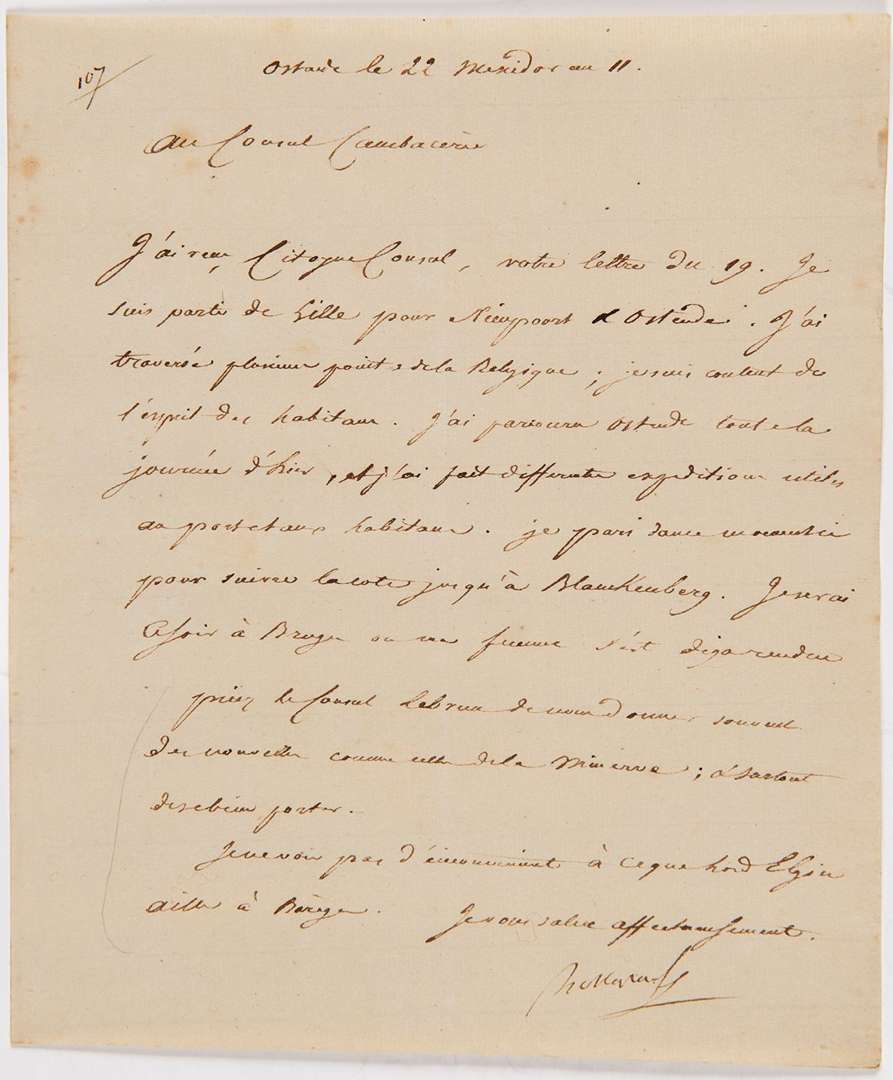 107
Ostende le 22 Messidor an 11.
Au Consul Cambacérès
J'ai reçu, Citoyen Consul, votre lettre du 19. Je
suis parti de Lille pour Nieuport & Ostende. J'ai
traversé plusieurs points de la Belgique; je suis content de
l'esprit des habitans. J'ai parcouru Ostende toute la
journée d'hier, et j'ai fait différentes expéditions utiles
au port et aux habitans. je pars dans ce moment-ci
pour suivre la cote jusqu'à Blankenberg. Je serai
ce soir à Bruges ou ma femme s'est déja rendue
priez le Consul Lebrun de nous donner souvent
des nouvelles comme celle de la Minerve; & surtout
de se bien porter.
Je ne vois pas d'inconvénient à ce que Lord Elgin
aille à Barège. Je vous salue affectueusement.